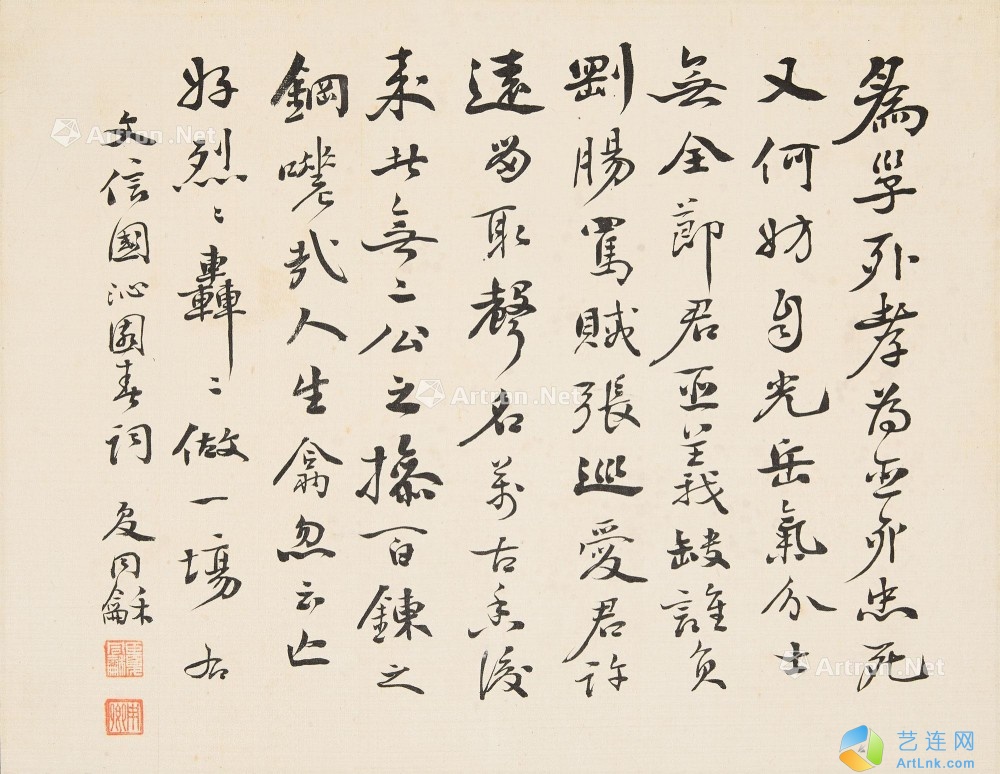 為子死孝為臣死忠死
又何妨自光岳氣分士
無全節君臣義缺誰負
剛腸罵賊張巡愛君許
遠留取聲名萬古香後
来者無二公之操百鍊之
鋼嗟哉人生翕忽云亡
好烈〻轟〻做一場右
文信國沁園春詞 同龢
Artron.Net
Artron.Net
Artron.Net
Artron.Net
Artron.Net
艺连网
ArtLnk.com